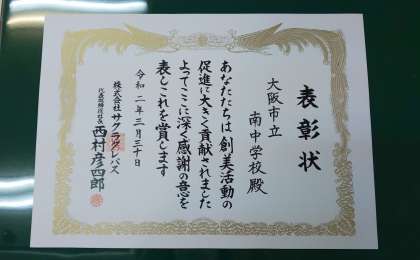 表彰状
大阪市立
南中学校殿
あなたたちは創美活動の
促進に大きく貢献されました
よってここに深く感謝の意を
表しこれを賞します
令和二年三月三十日
株式会社サクラクレパス
代表取締役社長
西村彦四郎